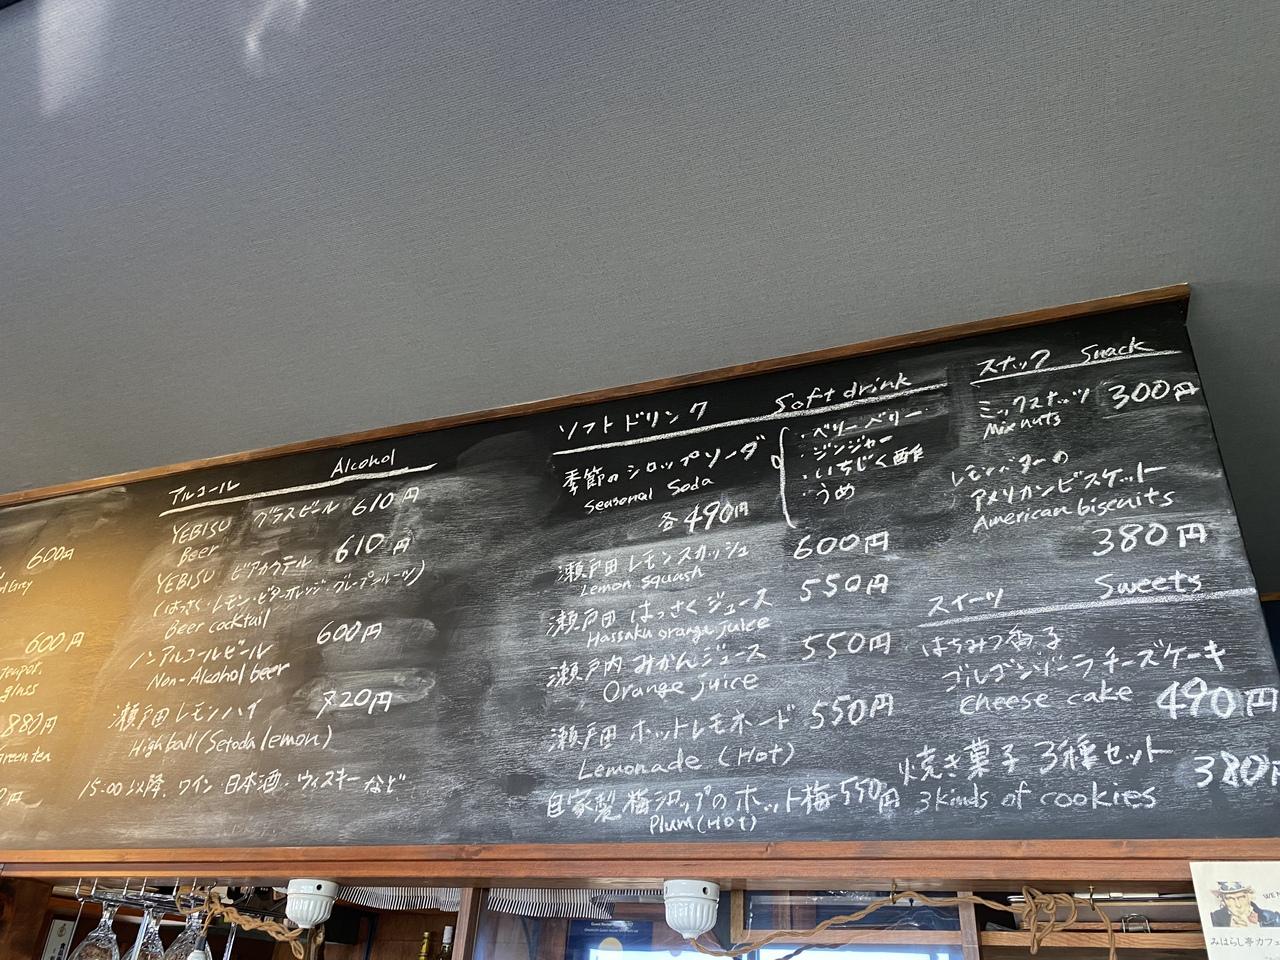 600円
rl Grey
600円
teapot,
glass
880円
green tea
円
アルコール Alcohol
YEBISU グラスビール 610円
Beer
YEBISU ビアカクテル 610円
(はっさく・レモン・ビターオレンジ・グレープフルーツ)
Beer cocktail
ノンアルコールビール 600円
Non-Alcohol beer
瀬戸田レモンハイ 720円
Highball (Setoda lemon)
15:00以降、ワイン・日本酒・ウィスキーなど
ソフトドリンク Soft drink
季節のシロップソーダ
Seasonal Soda
各490円
・ベリーベリー
・ジンジャー
・いちじく酢
・うめ
瀬戸田 レモンスカッシュ 600円
Lemon squash
瀬戸田 はっさくジュース 550円
Hassaku orange juice
瀬戸内 みかんジュース 550円
Orange juice
瀬戸田 ホットレモネード 550円
Lemonade (Hot)
自家製梅シロップのホット梅 550円
Plum (Hot)
スナック Snack
ミックスナッツ 300円
Mix nuts
レモンバターの
アメリカンビスケット
American biscuits
380円
スイーツ Sweets
はちみつ香る
ゴルゴンゾーラチーズケーキ
cheese cake 490円
焼き菓子 3種セット 380円
3 kinds of cookies
みはらし亭カフェ